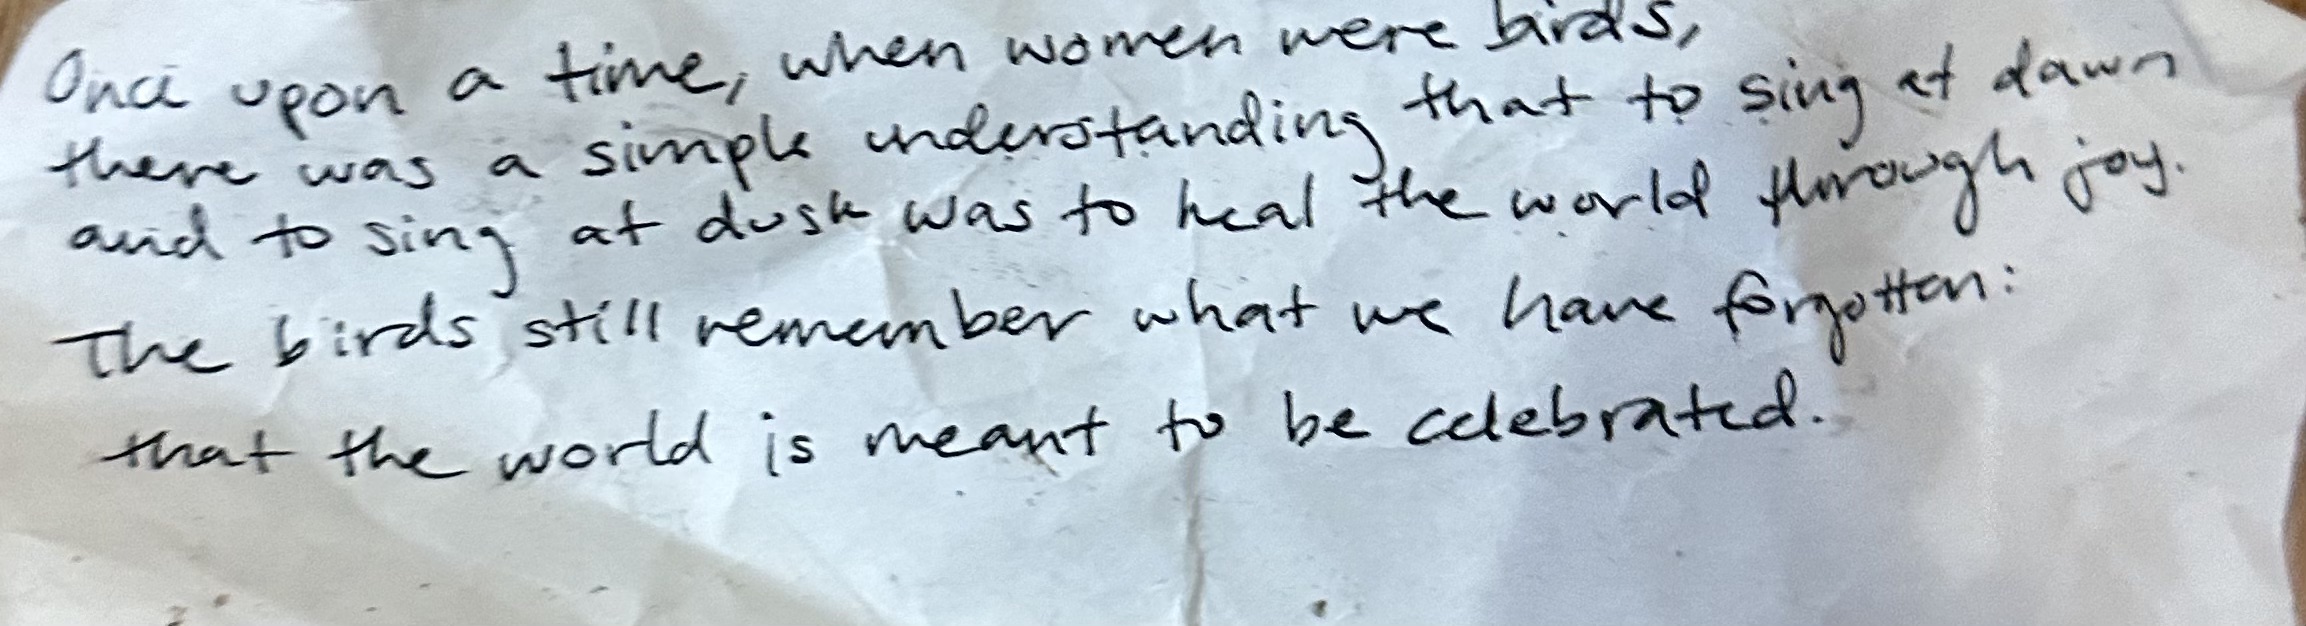 Once upon a time, when women were birds,
there was a simple understanding that to sing at dawn
and to sing at dusk was to heal the world through joy.
The birds still remember what we have forgotten:
that the world is meant to be celebrated.